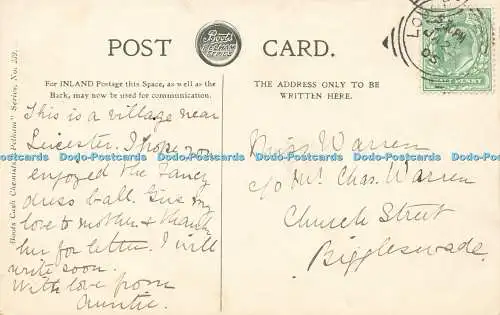 POST CARD.
Boots Cash Chemists
For INLAND Postage this Space, as well as the
Back, may now be used for communication.
THE ADDRESS ONLY TO BE
WRITTEN HERE.
Boots Cash Chemists "Pelham" Series, No. 279.
This is a village near
Leicester. I hope you
enjoyed the Fancy
dress ball. Give my
love to mother & thank
her for letter. I will
write soon.
With love from
Auntie.
Miss Warren
c/o Mr. Chas. Warren
Church Street
Biggleswade.
Dodo-Postcards Dodo-Postcards Dodo-Postcards Dodo-Postcards Dodo-Postcards Dodo-Postcards